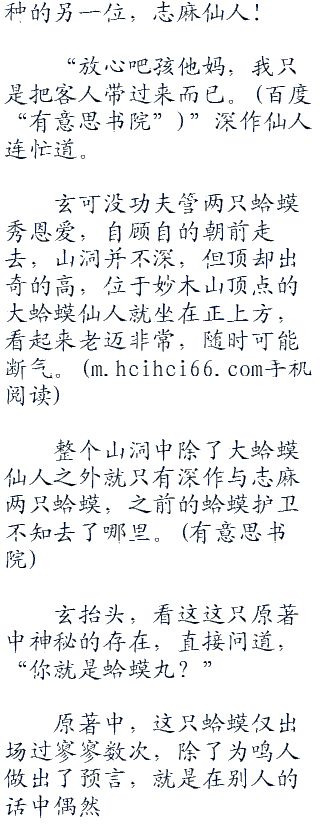 种的另一位，志麻仙人！
“放心吧孩他妈，我只
是把客人带过来而已。(百度
“有意思书院”)”深作仙人
连忙道。
玄可没功夫管两只蛤蟆
秀恩爱，自顾自的朝前走
去，山洞并不深，但顶却出
奇的高，位于妙木山顶点的
大蛤蟆仙人就坐在正上方，
看起来老迈非常，随时可能
断气。(m.hcihci66.com手机
阅读)
整个山洞中除了大蛤蟆
仙人之外就只有深作与志麻
两只蛤蟆，之前的蛤蟆护卫
不知去了哪里。(有意思书
院)
玄抬头，看这这只原著
中神秘的存在，直接问道，
“你就是蛤蟆丸？”
原著中，这只蛤蟆仅出
场过寥寥数次，除了为鸣人
做出了预言，就是在别人的
话中偶然